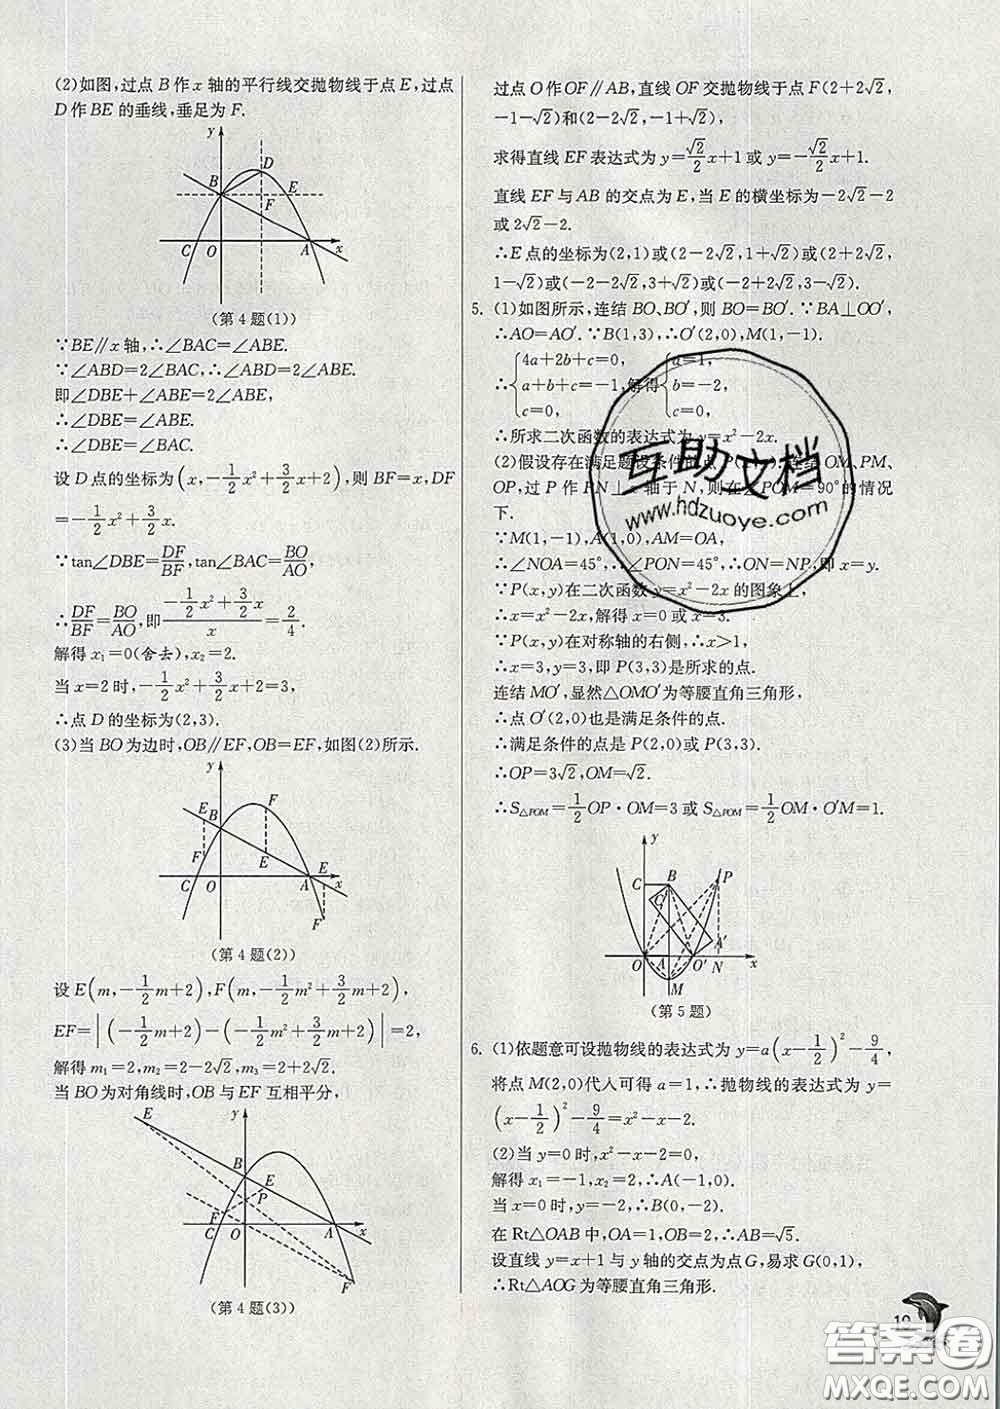 (2)如图,过点B作x轴的平行线交抛物线于点E,过点
D作BE的垂线,垂足为F.
y
D
B
E
F
C
O
A
x
(第4题(1))
∵BE∥x轴,∴∠BAC=∠ABE.
∵∠ABD=2∠BAC,∴∠ABD=2∠ABE.
即∠DBE+∠ABE=2∠ABE,
∴∠DBE=∠ABE.
∴∠DBE=∠BAC.
设D点的坐标为(x,-1/2x²+3/2x+2),则BF=x,DF
=-1/2x²+3/2x.
∵tan∠DBE=DF/BF,tan∠BAC=BO/AO,
∴DF/BF=BO/AO,即(-1/2x²+3/2x)/x=2/4.
解得x₁=0(舍去),x₂=2.
当x=2时,-1/2x²+3/2x+2=3,
∴点D的坐标为(2,3).
(3)当BO为边时,OB∥EF,OB=EF,如图(2)所示.
y
E
B
F
F
E
E
C
O
A
x
F
(第4题(2))
设E(m,-1/2m+2),F(m,-1/2m²+3/2m+2),
EF=|(-1/2m+2)-(-1/2m²+3/2m+2)|=2,
解得m₁=2,m₂=2-2√2,m₃=2+2√2.
当BO为对角线时,OB与EF互相平分,
E
y
B
E
P
F
C
O
A
x
F
(第4题(3))
过点O作OF∥AB,直线OF交抛物线于点F(2+2√2,
-1-√2)和(2-2√2,-1+√2),
求得直线EF表达式为y=√2/2x+1或y=-√2/2x+1.
直线EF与AB的交点为E,当E的横坐标为-2√2-2
或2√2-2.
∴E点的坐标为(2,1)或(2-2√2,1+√2)或(2+2√2,
1-√2)或(-2-2√2,3+√2)或(-2+2√2,3-√2).
5. (1)如图所示,连结BO、BO′,则BO=BO′.∵BA⊥OO′,
∴AO=AO′.∵B(1,3),∴O′(2,0),M(1,-1).
∴{4a+2b+c=0, a+b+c=-1, c=0, 解得{a=1, b=-2, c=0.
∴所求二次函数的表达式为y=x²-2x.
(2)假设存在满足题设条件的点P(x,y),连结OM、PM、
OP,过P作PN⊥x轴于N,则在∠POM=90°的情况
下.
∵M(1,-1),A(1,0),AM=OA,
∴∠NOA=45°,∴∠PON=45°,∴ON=NP,即x=y.
∵P(x,y)在二次函数y=x²-2x的图象上,
∴x=x²-2x,解得x=0或x=3.
∵P(x,y)在对称轴的右侧,∴x>1,
∴x=3,y=3,即P(3,3)是所求的点.
连结MO′,显然△OMO′为等腰直角三角形,
∴点O′(2,0)也是满足条件的点.
∴满足条件的点是P(2,0)或P(3,3).
∴OP=3√2,OM=√2.
∴S△POM=1/2OP·OM=3或S△POM=1/2OM·O′M=1.
y
C
B
P
C′
A′
O
A
O′
N
x
M
(第5题)
6. (1)依题意可设抛物线的表达式为y=a(x-1/2)²-9/4,
将点M(2,0)代入可得a=1,∴抛物线的表达式为y=
(x-1/2)²-9/4=x²-x-2.
(2)当y=0时,x²-x-2=0,
解得x₁=-1,x₂=2,∴A(-1,0).
当x=0时,y=-2,∴B(0,-2).
在Rt△OAB中,OA=1,OB=2,∴AB=√5.
设直线y=x+1与y轴的交点为点G,易求G(0,1),
∴Rt△AOG为等腰直角三角形.
互助文档
www.hdzuoye.com
19
答案圈
MXQE.COM